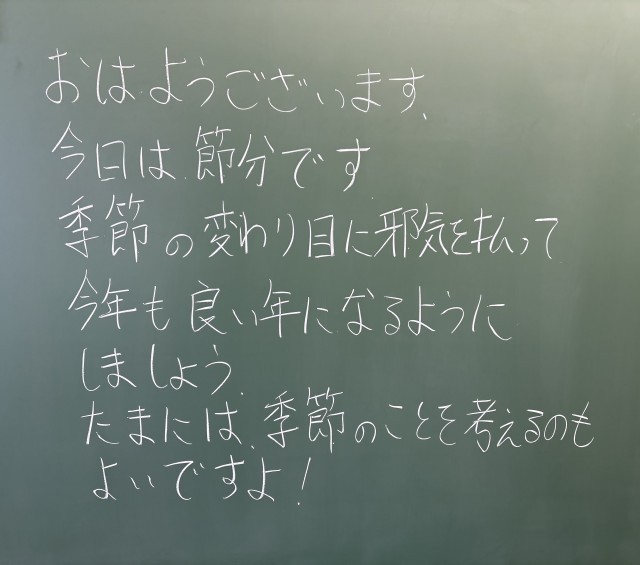 おはようございます、
今日は、節分です
季節の変わり目に邪気を払って
今年も良い年になるように
しましょう。
たまには、季節のことを考えるのも
よいですよ!